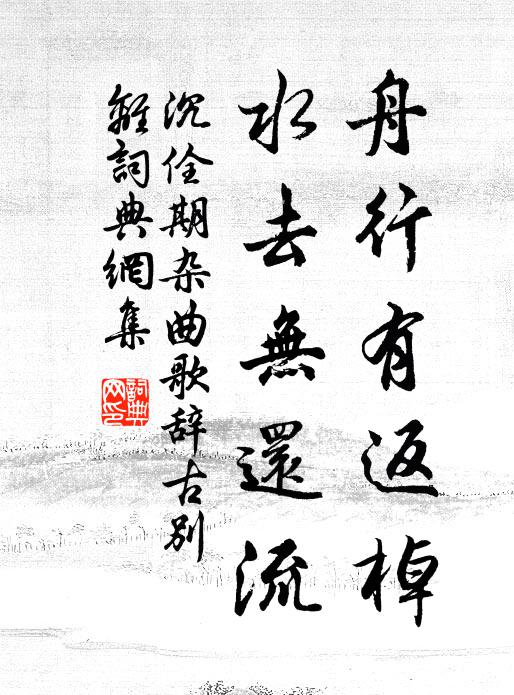 舟行有返棹
水去無還流
沉佺期杂曲歌辞古别
離詞典網集
詞典
网印